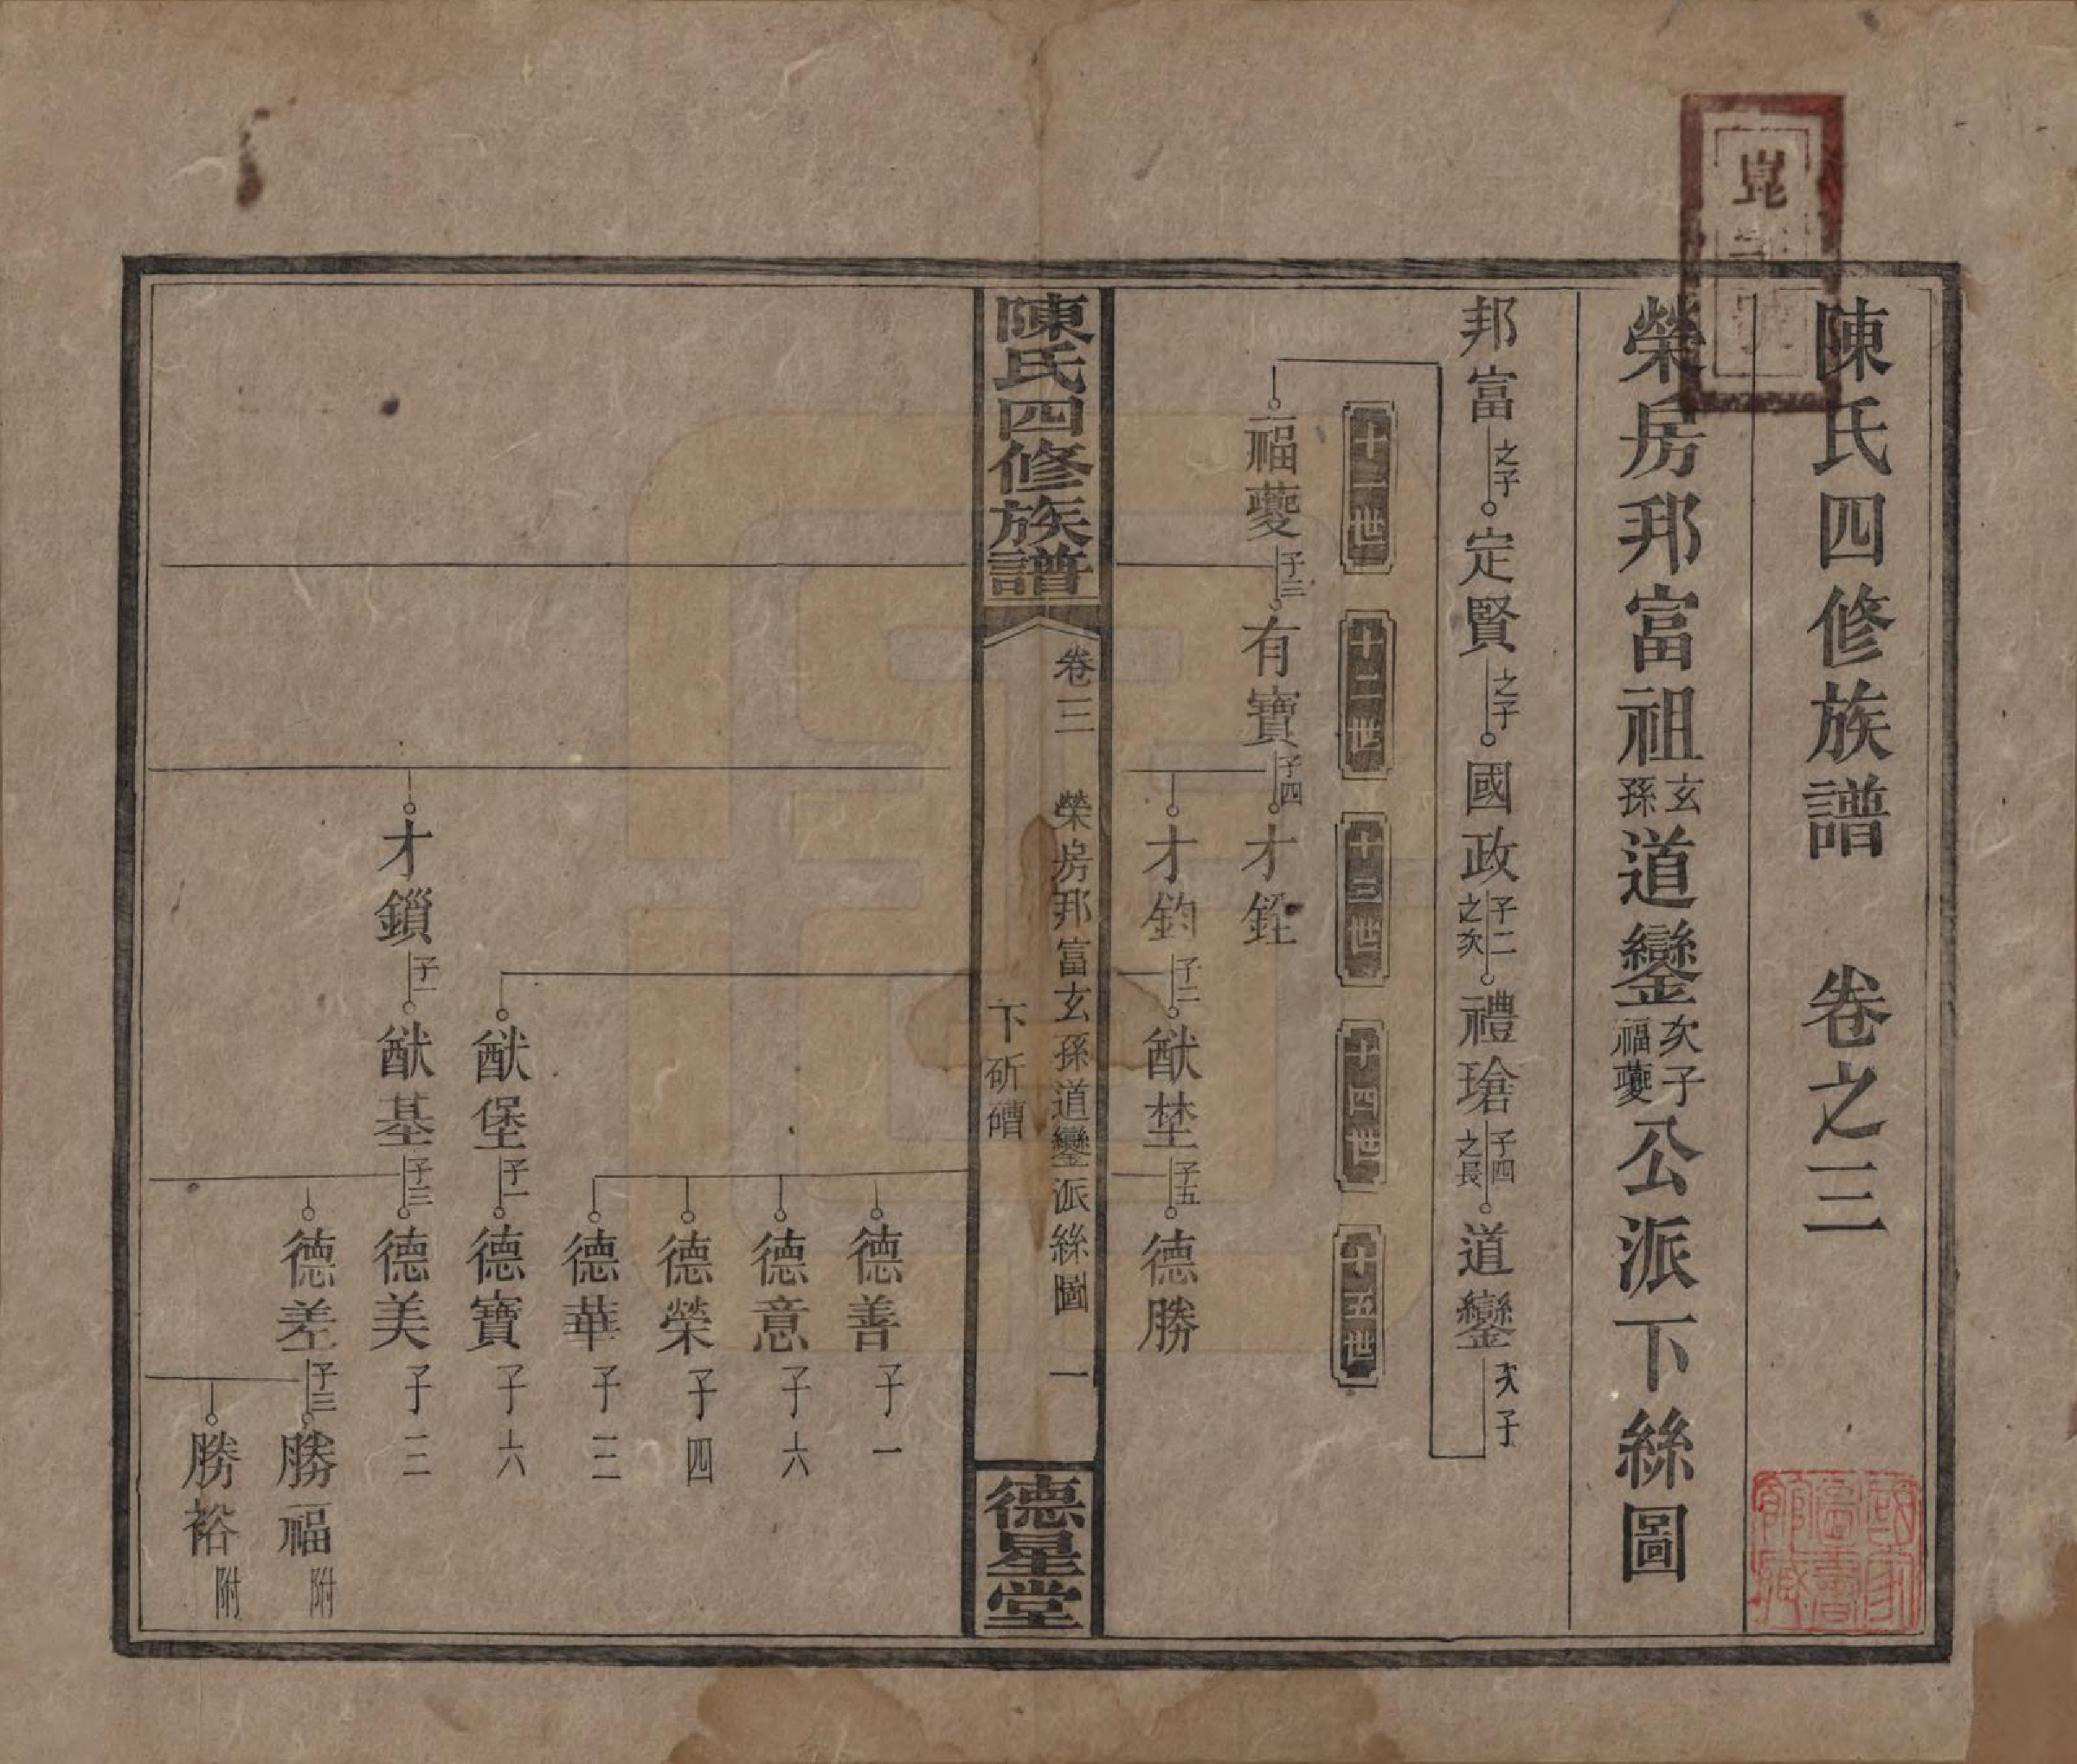 陳氏四修族譜 卷之三
榮房邦富祖玄孫道鑾次子福夔公派下絲圖
邦富之子定賢之子國政子二之次禮瑲子四之長道鑾次子
十一世 十二世 十三世 十四世 十五世
福夔子三有寶子四才銓
才鈞子二猷埜子五德勝
陳氏四修族譜
卷三 榮房邦富玄孫道鑾派絲圖 一
下斫礄
德星堂
德善子一
德意子六
德榮子四
德華子三
猷堡子一德寶子六
才鎖子一猷基子三德美子三
德差子三勝福附
勝裕附
國家圖書館藏